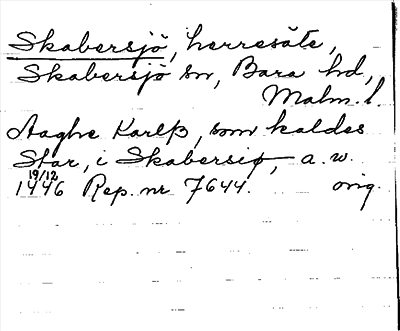 Skabersjö, herresäte,
Skabersjö sn, Bara hd,
Malm. l.
Aaghe Karlß, som kaldes
Star, i Skabersiø, a.w.
19/12
1446 Rep. nr 7644. orig.